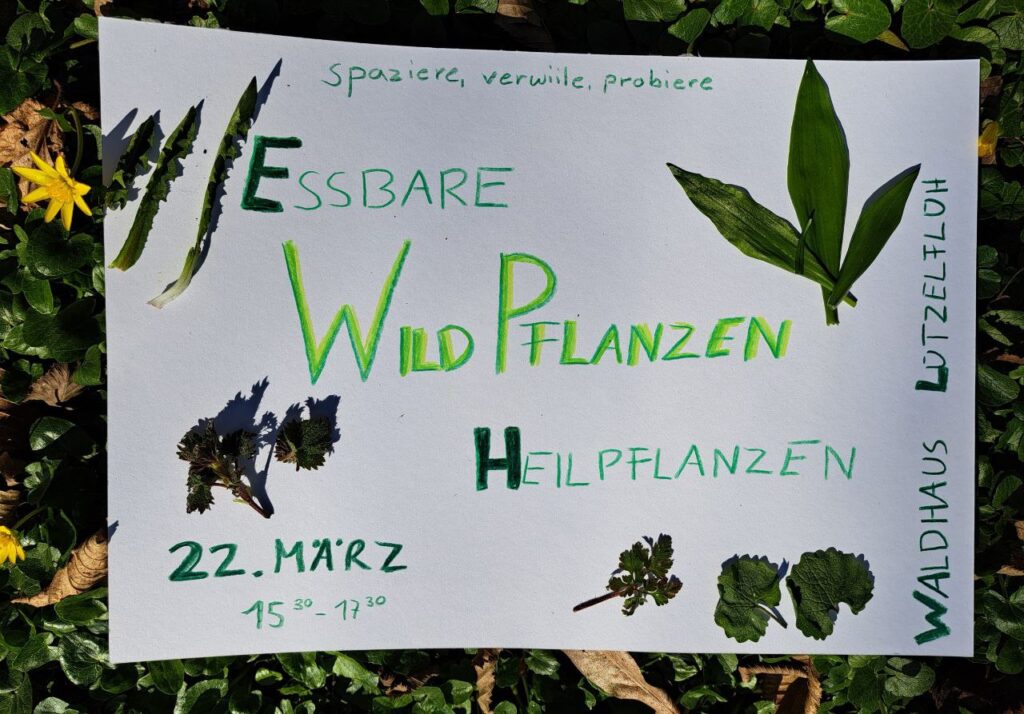 spaziere, verwiile, probiere
ESSBARE
WILDPFLANZEN
HEILPFLANZEN
22. MÄRZ
15³⁰ - 17³⁰
WALDHAUS LÜTZELFLÜH